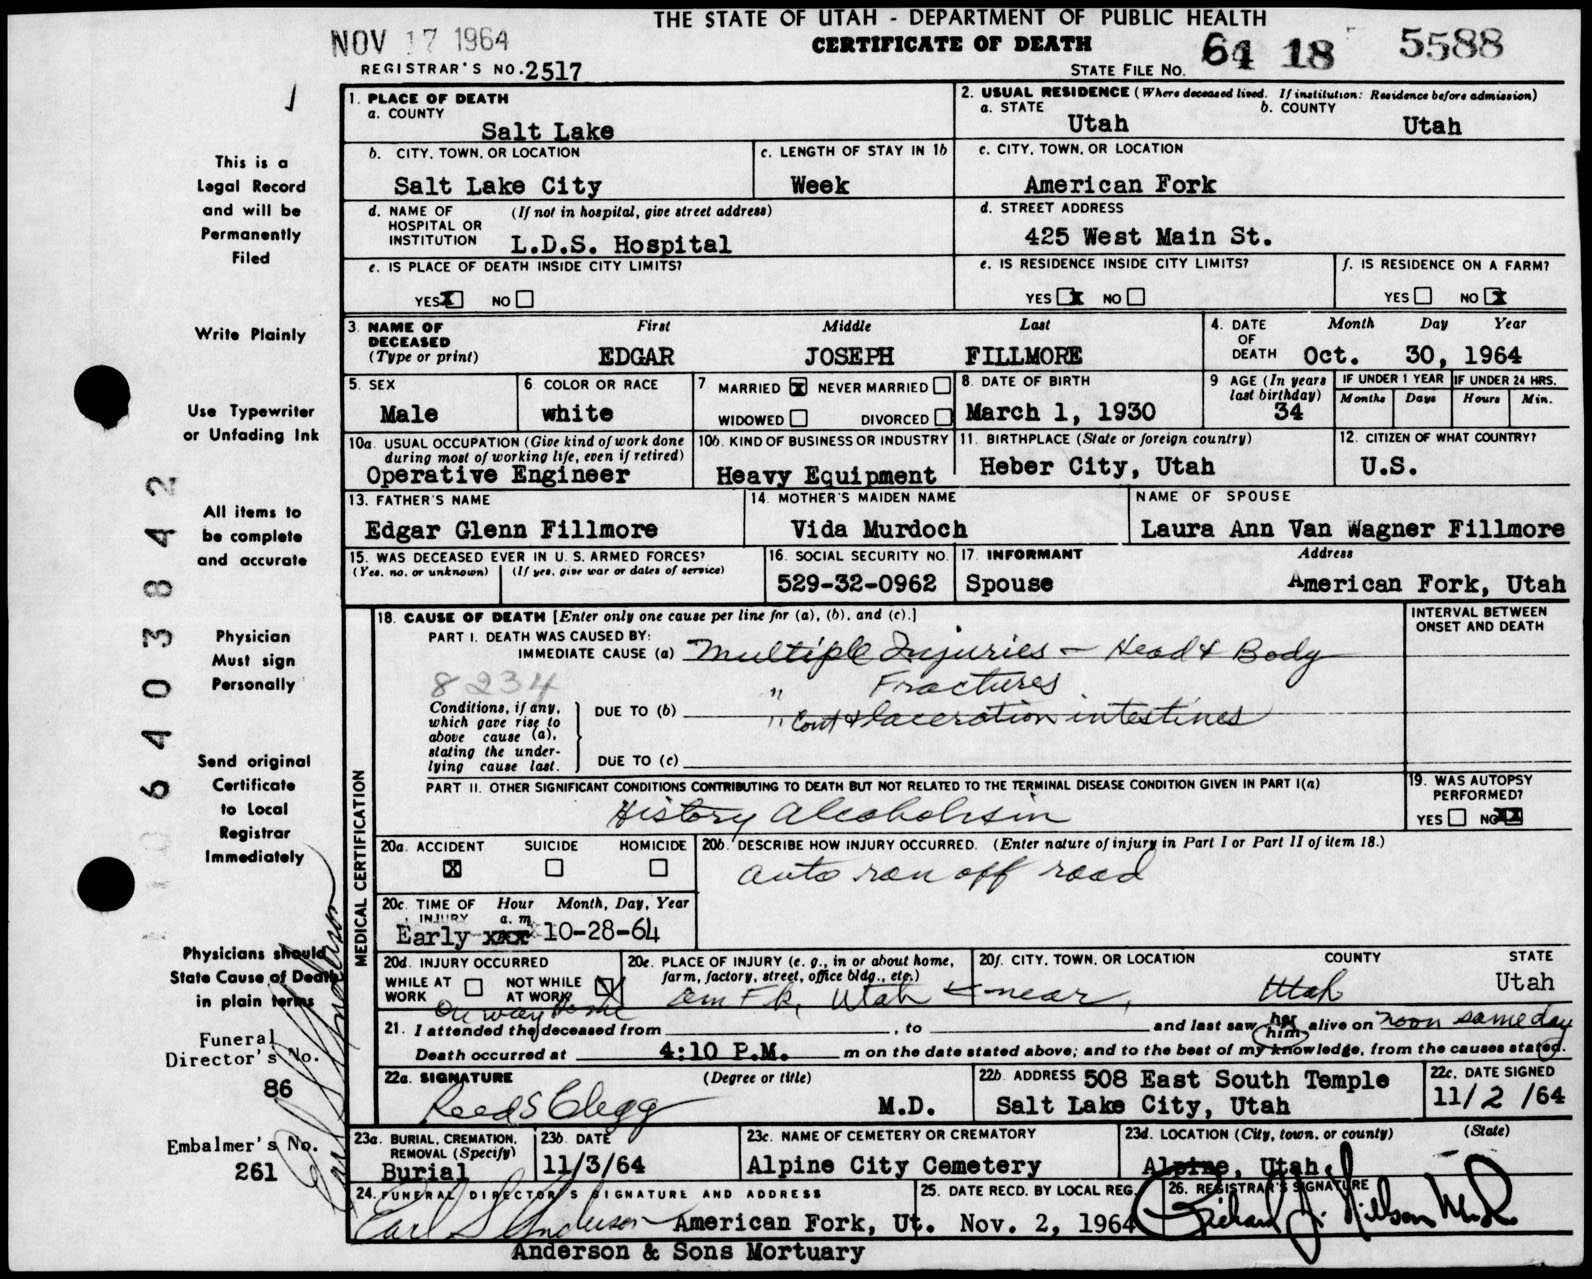 THE STATE OF UTAH - DEPARTMENT OF PUBLIC HEALTH
CERTIFICATE OF DEATH
NOV 17 1964
REGISTRAR'S NO. 2517
STATE FILE NO. 64 18 5588
This is a
Legal Record
and will be
Permanently
Filed
Write Plainly
Use Typewriter
or Unfading Ink
All items to
be complete
and accurate
Physician
Must sign
Personally
Send original
Certificate
to Local
Registrar
Immediately
Physicians should
State Cause of Death
in plain terms
Funeral
Director's No.
86
Embalmer's No.
261
64403842
Earl S Anderson
1. PLACE OF DEATH
a. COUNTY
Salt Lake
2. USUAL RESIDENCE (Where deceased lived. If institution: Residence before admission)
a. STATE b. COUNTY
Utah Utah
b. CITY, TOWN, OR LOCATION
Salt Lake City
c. LENGTH OF STAY IN 1b
Week
c. CITY, TOWN, OR LOCATION
American Fork
d. NAME OF HOSPITAL OR INSTITUTION (If not in hospital, give street address)
L.D.S. Hospital
d. STREET ADDRESS
425 West Main St.
e. IS PLACE OF DEATH INSIDE CITY LIMITS?
YES X NO
e. IS RESIDENCE INSIDE CITY LIMITS?
YES X NO
f. IS RESIDENCE ON A FARM?
YES NO X
3. NAME OF DECEASED (Type or print)
First Middle Last
EDGAR JOSEPH FILLMORE
4. DATE OF DEATH Month Day Year
Oct. 30, 1964
5. SEX
Male
6. COLOR OR RACE
white
7 MARRIED X NEVER MARRIED
WIDOWED DIVORCED
8. DATE OF BIRTH
March 1, 1930
9 AGE (In years last birthday)
34
IF UNDER 1 YEAR IF UNDER 24 HRS.
Months Days Hours Min.
10a. USUAL OCCUPATION (Give kind of work done during most of working life, even if retired)
Operative Engineer
10b. KIND OF BUSINESS OR INDUSTRY
Heavy Equipment
11. BIRTHPLACE (State or foreign country)
Heber City, Utah
12. CITIZEN OF WHAT COUNTRY?
U.S.
13. FATHER'S NAME
Edgar Glenn Fillmore
14. MOTHER'S MAIDEN NAME
Vida Murdoch
NAME OF SPOUSE
Laura Ann Van Wagner Fillmore
15. WAS DECEASED EVER IN U.S. ARMED FORCES?
(Yes, no, or unknown) (If yes, give war or dates of service)
16. SOCIAL SECURITY NO.
529-32-0962
17. INFORMANT Address
Spouse American Fork, Utah
MEDICAL CERTIFICATION
18. CAUSE OF DEATH [Enter only one cause per line for (a), (b), and (c).]
INTERVAL BETWEEN ONSET AND DEATH
PART I. DEATH WAS CAUSED BY:
IMMEDIATE CAUSE (a) Multiple Injuries - Head & Body
8234
" Fractures
Conditions, if any, which gave rise to above cause (a), stating the underlying cause last.
DUE TO (b) " Cont & laceration intestines
DUE TO (c)
PART II. OTHER SIGNIFICANT CONDITIONS CONTRIBUTING TO DEATH BUT NOT RELATED TO THE TERMINAL DISEASE CONDITION GIVEN IN PART I(a)
History Alcoholisim
19. WAS AUTOPSY PERFORMED?
YES NO X
20a. ACCIDENT SUICIDE HOMICIDE
X
20b. DESCRIBE HOW INJURY OCCURRED. (Enter nature of injury in Part I or Part II of item 18.)
auto ran off road
20c. TIME OF INJURY Hour a.m Month, Day, Year
Early xxx 10-28-64
20d. INJURY OCCURRED
WHILE AT WORK NOT WHILE AT WORK X
On way Home
20e. PLACE OF INJURY (e. g., in or about home, farm, factory, street, office bldg., etc.)
20f. CITY, TOWN, OR LOCATION COUNTY STATE
Am Fk, Utah & near, Utah Utah
21. I attended the deceased from , to and last saw her him alive on noon same day
Death occurred at 4:10 P.M. m on the date stated above; and to the best of my knowledge, from the causes stated.
22a. SIGNATURE (Degree or title)
Reed S Clegg M.D.
22b. ADDRESS 508 East South Temple
Salt Lake City, Utah
22c. DATE SIGNED
11/2/64
23a. BURIAL, CREMATION, REMOVAL (Specify)
Burial
23b. DATE
11/3/64
23c. NAME OF CEMETERY OR CREMATORY
Alpine City Cemetery
23d. LOCATION (City, town, or county) (State)
Alpine, Utah
24. FUNERAL DIRECTOR'S SIGNATURE AND ADDRESS
Earl S Anderson American Fork, Ut.
Anderson & Sons Mortuary
25. DATE RECD. BY LOCAL REG.
Nov. 2, 1964
26. REGISTRAR'S SIGNATURE
Richard J. Nilson M.D.